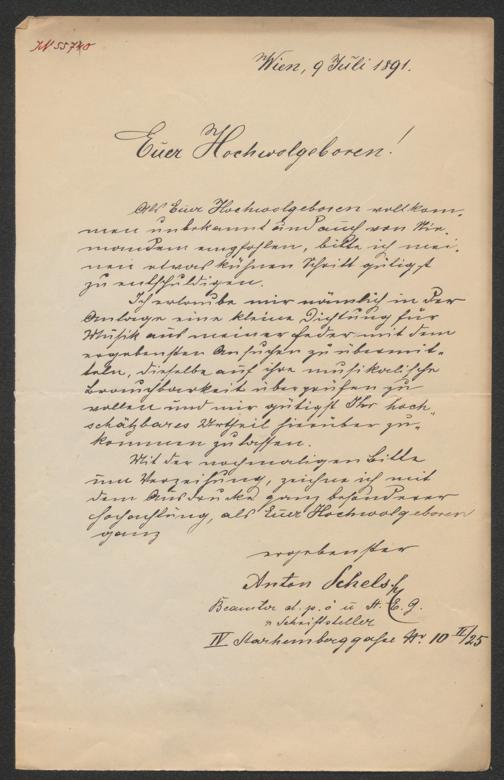 IN 55740
Wien, 9 Juli 1891.
Euer Hochwolgeboren!
Als Euer Hochwolgeboren vollkom-
men unbekannt und auch von Nie-
mandem empfohlen, bitte ich mei-
nen etwas kühnen Schritt gütigst
zu entschuldigen.
Ich erlaube mir nämlich in der
Anlage eine kleine Dichtung für
Musik aus meiner Feder mit dem
ergebensten Ansuchen zu übermit-
teln, dieselbe auf ihre musikalische
Brauchbarkeit überprüfen zu
wollen und mir gütigst Ihr hoch-
schätzbares Urtheil hierüber zu-
kommen zu lassen.
Mit der nochmaligen Bitte
um Verzeihung, zeichne ich mit
dem Ausdrucke ganz besonderer
Hochachtung, als Euer Hochwolgeboren
ganz
ergebenster
Anton Schelsky
Beamter d. p. ö u St. E. G.
n Schriftsteller
IV Starhemberggasse Nr. 10 II/25